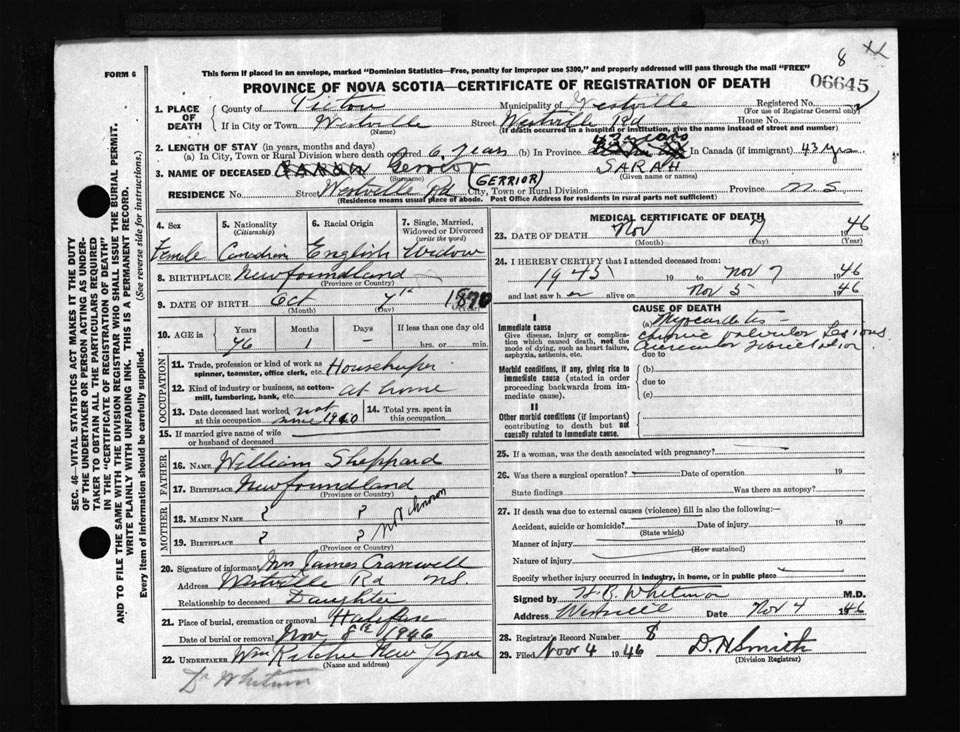 8
FORM 6
This form if placed in an envelope, marked "Dominion Statistics—Free, penalty for improper use $300," and properly addressed will pass through the mail "FREE"
06645
PROVINCE OF NOVA SCOTIA—CERTIFICATE OF REGISTRATION OF DEATH
1. PLACE OF DEATH
County of Pictou Municipality of Westville Registered No.
(For use of Registrar General only)
If in City or Town Westville Street Westville Rd House No.
(Name) (If death occurred in a hospital or institution, give the name instead of street and number)
2. LENGTH OF STAY (in years, months and days)
(a) In City, Town or Rural Division where death occurred 6 years (b) In Province 43 years In Canada (if immigrant) 43 yrs
3. NAME OF DECEASED Gerrior SARAH
(Surname) (GERRIOR) (Given name or names)
RESIDENCE No. Street Westville Rd City, Town or Rural Division Province N.S
(Residence means usual place of abode. Post Office Address for residents in rural parts not sufficient)
SEC. 46—VITAL STATISTICS ACT MAKES IT THE DUTY
OF THE UNDERTAKER OR PERSON ACTING AS UNDER-
TAKER TO OBTAIN ALL THE PARTICULARS REQUIRED
IN THE "CERTIFICATE OF REGISTRATION OF DEATH"
AND TO FILE THE SAME WITH THE DIVISION REGISTRAR WHO SHALL ISSUE THE BURIAL PERMIT.
WRITE PLAINLY WITH UNFADING INK. THIS IS A PERMANENT RECORD.
Every item of information should be carefully supplied. (See reverse side for instructions.)
4. Sex 5. Nationality (Citizenship) 6. Racial Origin 7. Single, Married, Widowed or Divorced (write the word)
Female Canadian English Widow
8. BIRTHPLACE Newfoundland
(Province or Country)
9. DATE OF BIRTH Oct 7th 1870
(Month) (Day) (Year)
10. AGE in Years Months Days If less than one day old
76 1 — hrs. or min.
OCCUPATION
11. Trade, profession or kind of work as spinner, teamster, office clerk, etc. Housekeeper
12. Kind of industry or business, as cotton-mill, lumbering, bank, etc. at home
13. Date deceased last worked at this occupation not since 1940 14. Total yrs. spent in this occupation
15. If married give name of wife or husband of deceased
FATHER
16. NAME William Sheppard
17. BIRTHPLACE Newfoundland
(Province or Country)
MOTHER
18. MAIDEN NAME ? ? not known
19. BIRTHPLACE ? ?
(Province or Country)
20. Signature of informant Mrs James Cranwell
Address Westville Rd NS
Relationship to deceased Daughter
21. Place of burial, cremation or removal
Date of burial or removal Nov 8th 1946
22. UNDERTAKER Wm Ritchie New
(Name and address)
Dr Whitman
MEDICAL CERTIFICATE OF DEATH
23. DATE OF DEATH Nov 7 1946
(Month) (Day) (Year)
24. I HEREBY CERTIFY that I attended deceased from:
1945 19 to Nov 7 1946
and last saw her alive on Nov 5 1946
CAUSE OF DEATH
I
Immediate cause
Give disease, injury or complication which caused death, not the mode of dying, such as heart failure, asphyxia, asthenia, etc.
(a) Myocarditis —
Chronic valvular Lesions
auricular fibrillation
due to
Morbid conditions, if any, giving rise to immediate cause (stated in order proceeding backwards from immediate cause).
(b)
due to
(c)
II
Other morbid conditions (if important) contributing to death but not causally related to immediate cause.
25. If a woman, was the death associated with pregnancy?
26. Was there a surgical operation? Date of operation 19
State findings Was there an autopsy?
27. If death was due to external causes (violence) fill in also the following:—
Accident, suicide or homicide? Date of injury 19
(State which)
Manner of injury
(How sustained)
Nature of injury
Specify whether injury occurred in industry, in home, or in public place
Signed by H. B. Whitman M.D.
Address Westville Date Nov 4 1946
28. Registrar's Record Number 8
29. Filed Nov 4 1946 D. H Smith
(Division Registrar)